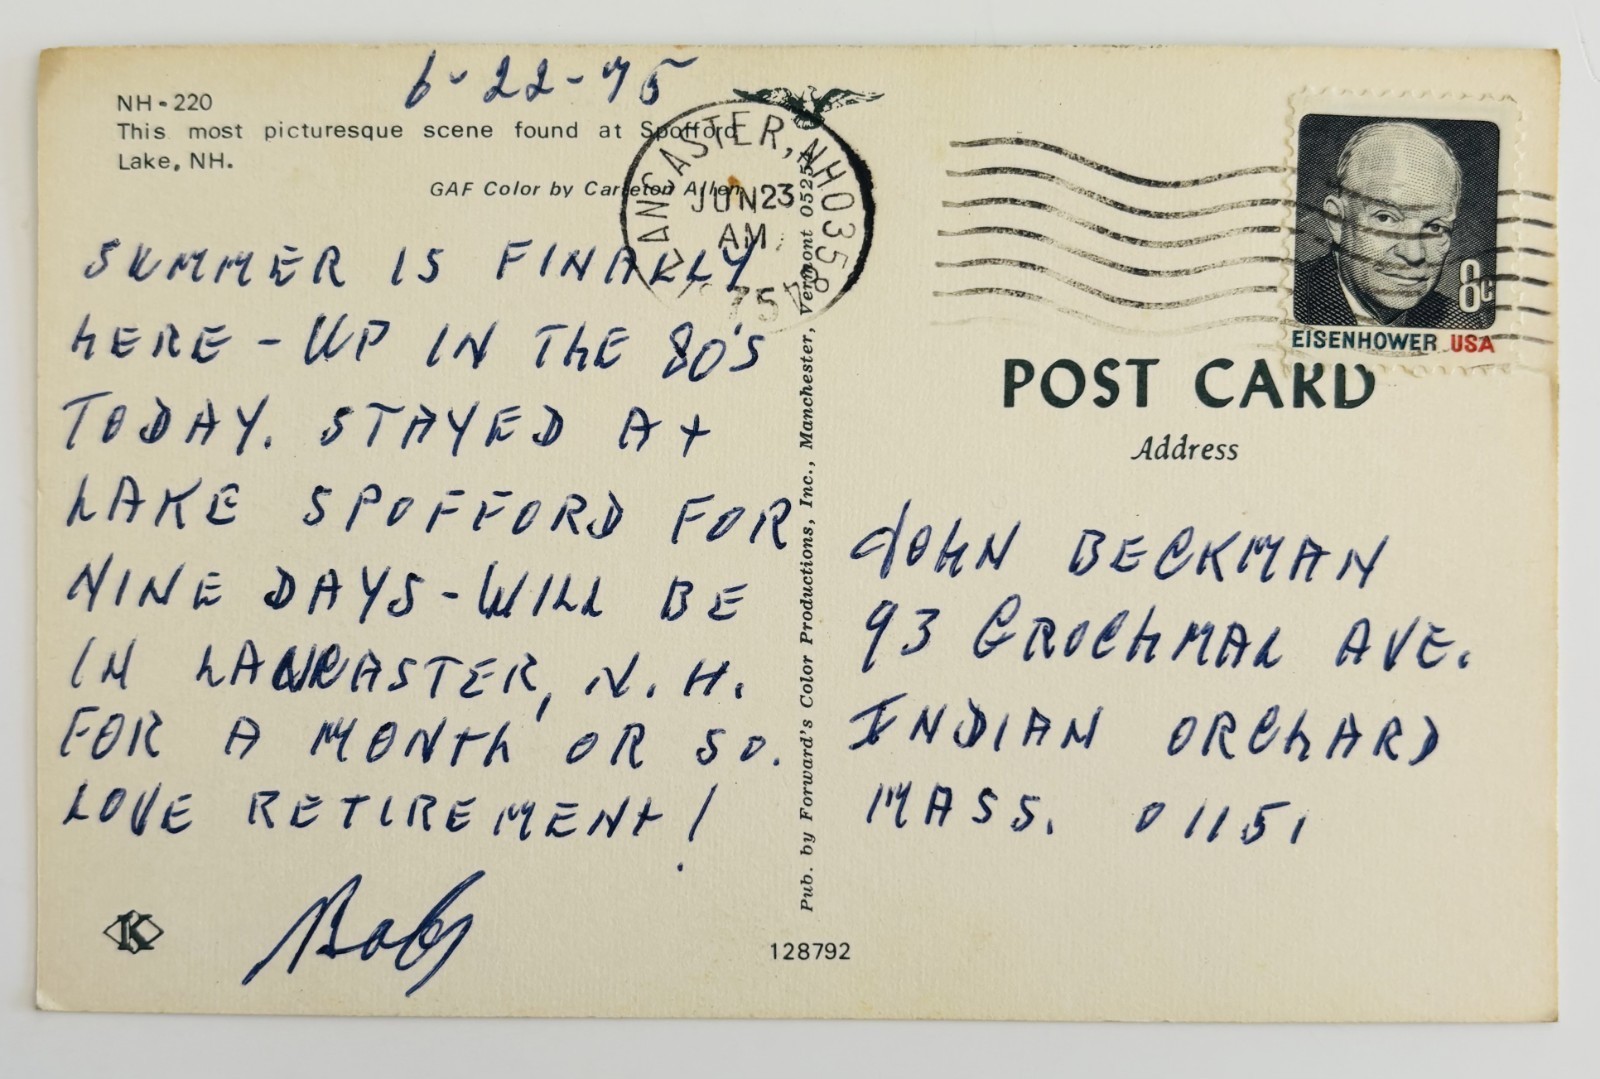 6-22-75
NH-220
This most picturesque scene found at Spofford
Lake, NH.
GAF Color by Carleton Allen
LANCASTER, NH 03584
JUN 23
AM
1975
SUMMER IS FINALLY
HERE - UP IN THE 80'S
TODAY. STAYED AT
LAKE SPOFFORD FOR
NINE DAYS - WILL BE
IN LANCASTER, N.H.
FOR A MONTH OR SO.
LOVE RETIREMENT!
Bob
K
Pub. by Forward's Color Productions, Inc., Manchester, Vermont 05254
128792
8c
EISENHOWER USA
POST CARD
Address
JOHN BECKMAN
93 GROCHMAL AVE.
INDIAN ORCHARD
MASS. 01151